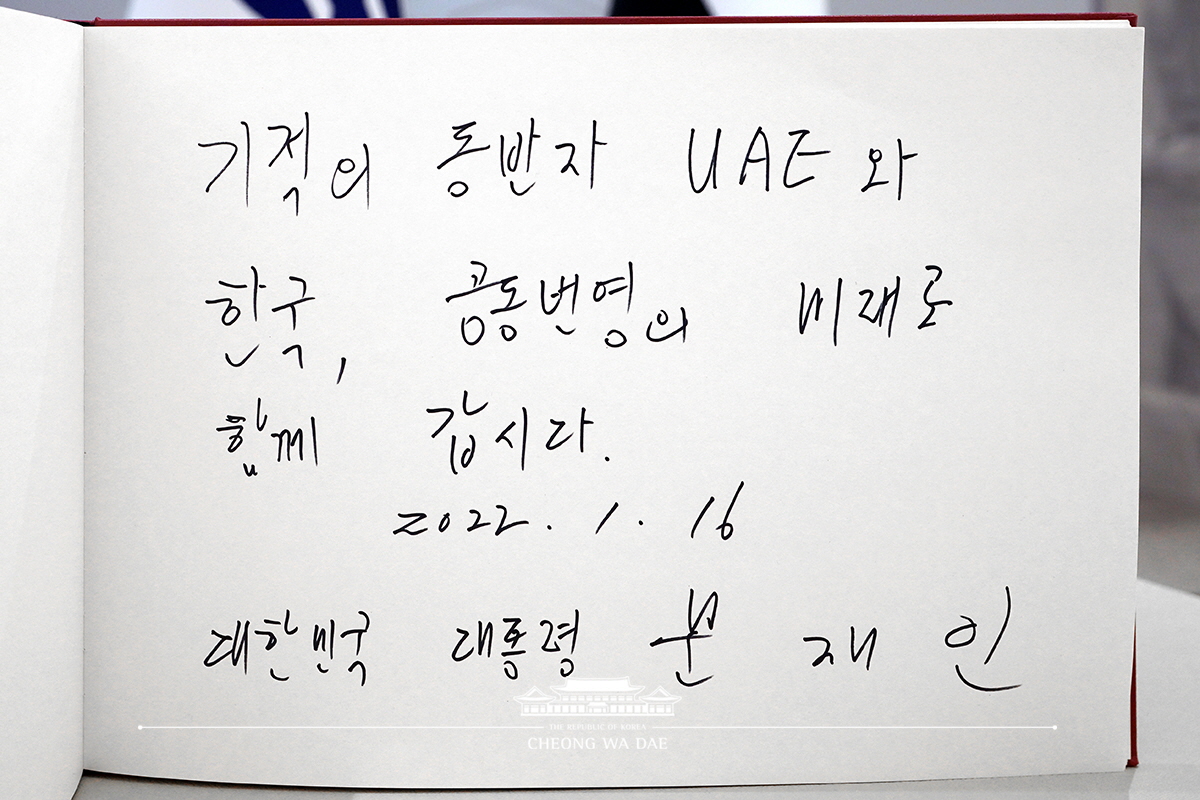 기적의 동반자 UAE와
한국, 공동번영의 미래로
함께 갑시다.
2022. 1. 16
대한민국 대통령 문 재 인
THE REPUBLIC OF KOREA
CHEONG WA DAE